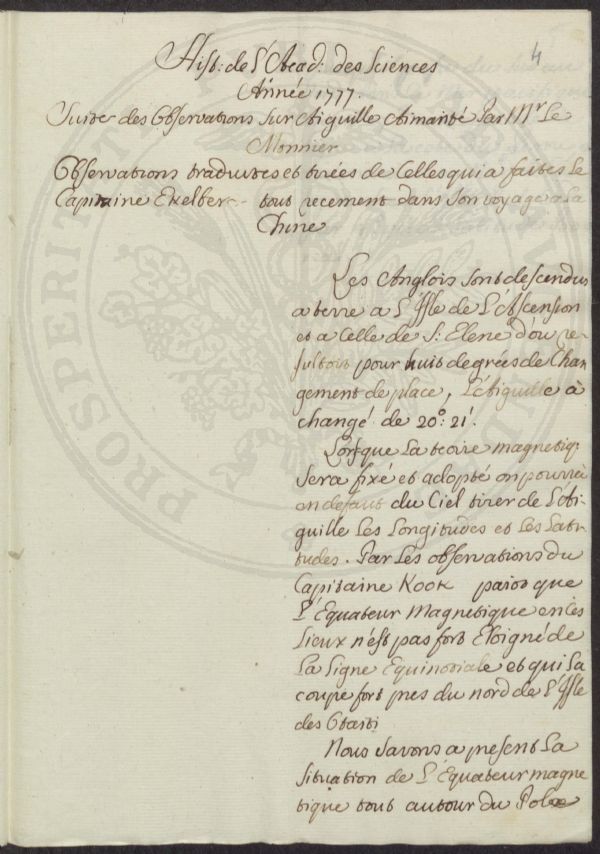 4
Hist: de l'Acad: des Sciences
Année 1777.
Suite des Observations sur Aiguille Aimanté Par Mr Le
Monnier
Observations traduites et tirées de Celles qui a faites Le
Capitaine Ekelber tout recement dans son voyage a La
Chine
Les Anglois sont descendus
a terre a L'Isle de L'Ascension
et a Celle de S: Elene d'ou re-
sultoit pour huit degrées de Chan
gement de place, L'Aiguille à
changé de 20°: 21'.
Lorsque La teorie magnetiq:
sera fixé et adopté on pourra
en defaut du Ciel tirer de L'Ai-
guille Les Longitudes et Les Lati-
tudes. Par Les observations du
Capitaine Kook paiot que
L'Equateur Magnetique en Ces
Lieux n'est pas fort Eloigné de
La Ligne Equinotiale et qui La
coupe fort pres du nord de L'Isle
des Otaiti
Nous Savons a present La
Situation de L'Equateur magne
tique tout autour du Pole
PROSPERITÉ